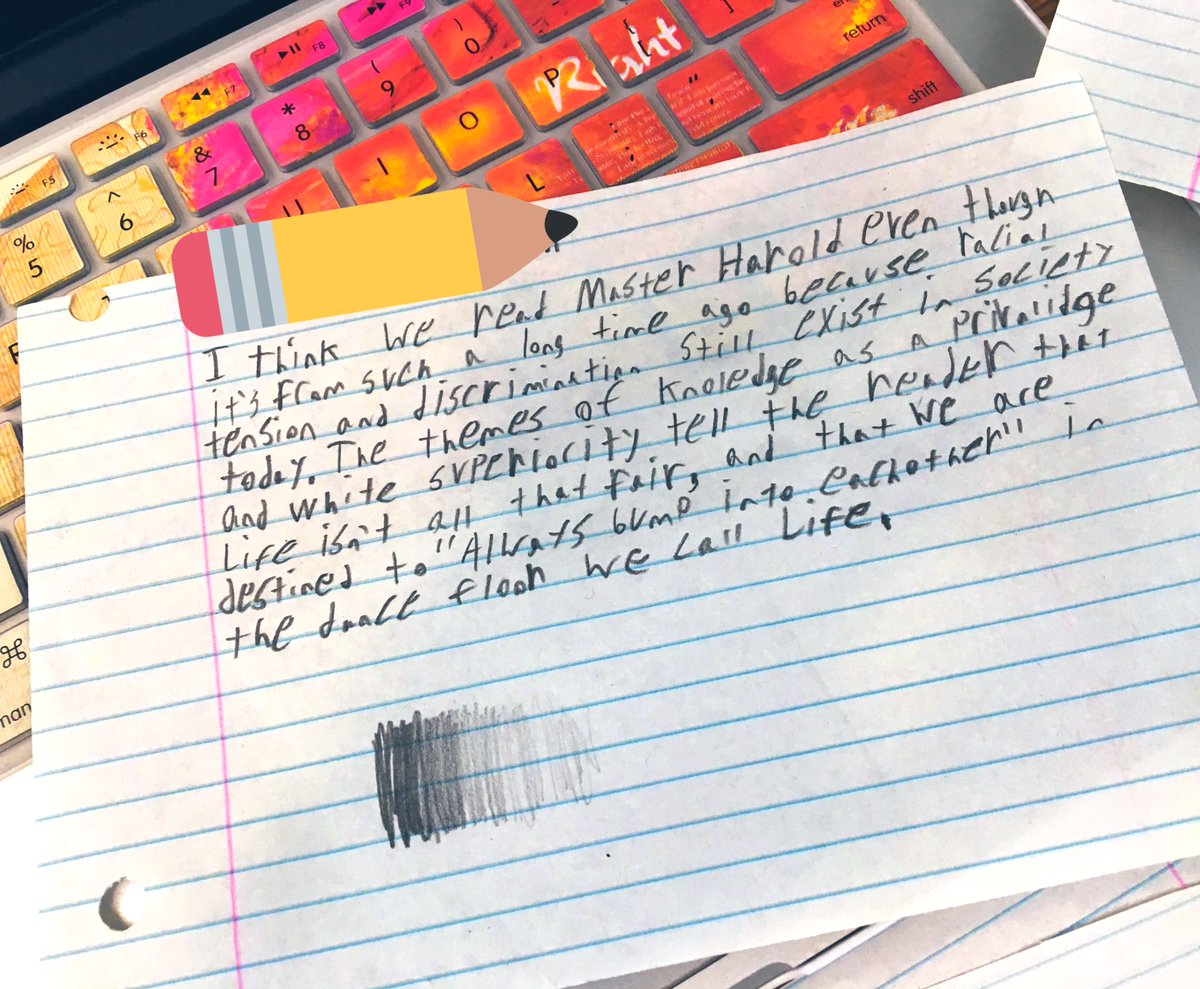 F5
F6
F7
F8
F9
%
5
^
6
&
7
*
8
(
9
)
0
U
I
O
P
L
Right
return
shift
⌘
I think we read Master Harold even though
it's from such a long time ago because racial
tension and discrimination still exist in society
today. The themes of Knoledge as a privalidge
and white superiority tell the reader that
Life isn't all that fair, and that we are
destined to "Always bump into eachother" in
the dance floor we call Life.